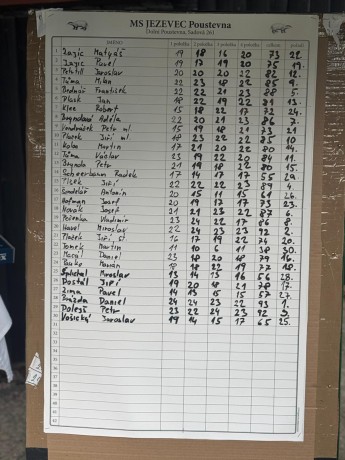 MS JEZEVEC Poustevna
Dolní Poustevna, Sadová 261
JMÉNO 1 položka 2 položka 3 položka 4 položka celkem pořadí
1 Zajíc Matyáš 19 18 16 20 73 22.
2 Zajíc Pavel 19 17 19 20 75 19.
3 Petrtil Jaroslav 20 20 20 22 82 12.
4 Tůma Milan 22 23 18 22 85 9.
5 Bednář František 22 22 21 23 88 5.
6 Plašek Jan 18 22 19 22 81 13.
7 Klee Robert 15 18 22 17 72 24.
8 Bogndová Adéla 22 20 21 23 86 7.
9 Vondráček Petr ml 15 19 18 21 73 21.
10 Plažek Jiří ml 18 23 22 22 85 10
11 Kolaa Martin 17 21 20 22 80 14.
12 Tůma Václav 23 19 22 20 84 11.
13 Bognda Petr 21 19 18 22 80 15.
14 Scheerbaum Radek 17 14 17 17 55 29.
15 Plzek Jiří 22 22 22 23 89 4.
16 Gundelář Antonín 20 15 11 15 61 26.
17 Hofman Josef 20 19 17 17 73 23.
18 Novák Josef 21 21 23 22 87 6.
19 Peženka Vladimír 23 24 22 17 86 8
20 Havel Miroslav 22 24 23 23 92 2.
21 Plažek Jiří st 16 17 19 22 74 20.
22 Tomek Martin 11 10 6 11 38 30.
23 Daniel 23 18 20 18 79 16.
24 18 18 22 19 77 18.
25 Šplíchal Miroslav 13 14 13 16 56 28.
26 Dostál Jiří 19 20 18 21 78 17.
27 Zima Pavel 14 13 15 15 57 27.
28 Prázda Daniel 24 24 23 22 93 1.
29 Doleš Petr 23 22 24 23 92 3.
30 Vošický Jaroslav 19 14 15 17 65 25.